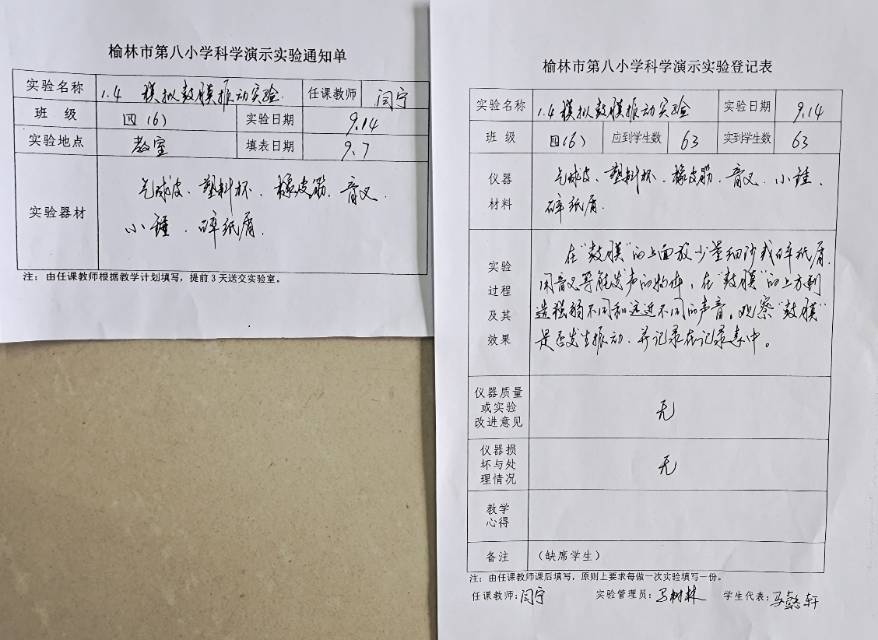 榆林市第八小学科学演示实验通知单
实验名称 1.4 模拟鼓膜振动实验 任课教师 闫宁
班 级 四(6) 实验日期 9.14
实验地点 教室 填表日期 9.7
实验器材
气球皮、塑料杯、橡皮筋、音叉、
小锤、碎纸屑.
注:由任课教师根据教学计划填写,提前3天送交实验室。
榆林市第八小学科学演示实验登记表
实验名称 1.4 模拟鼓膜振动实验 实验日期 9.14
班 级 四(6) 应到学生数 63 实到学生数 63
仪器
材料
气球皮、塑料杯、橡皮筋、音叉、小锤、
碎纸屑.
实验
过程
及其
效果
在"鼓膜"的上面放少量细沙或碎纸屑,
用音叉等能发声的物体,在"鼓膜"的上方制
造强弱不同和远近不同的声音。观察"鼓膜"
是否发生振动,并记录在记录表中。
仪器质量
或实验
改进意见
无
仪器损
坏与处
理情况
无
教学
心得
备注 (缺席学生)
注:由任课教师课后填写,原则上要求每做一次实验填写一份。
任课教师:闫宁 实验管理员:马树林 学生代表:马懿轩